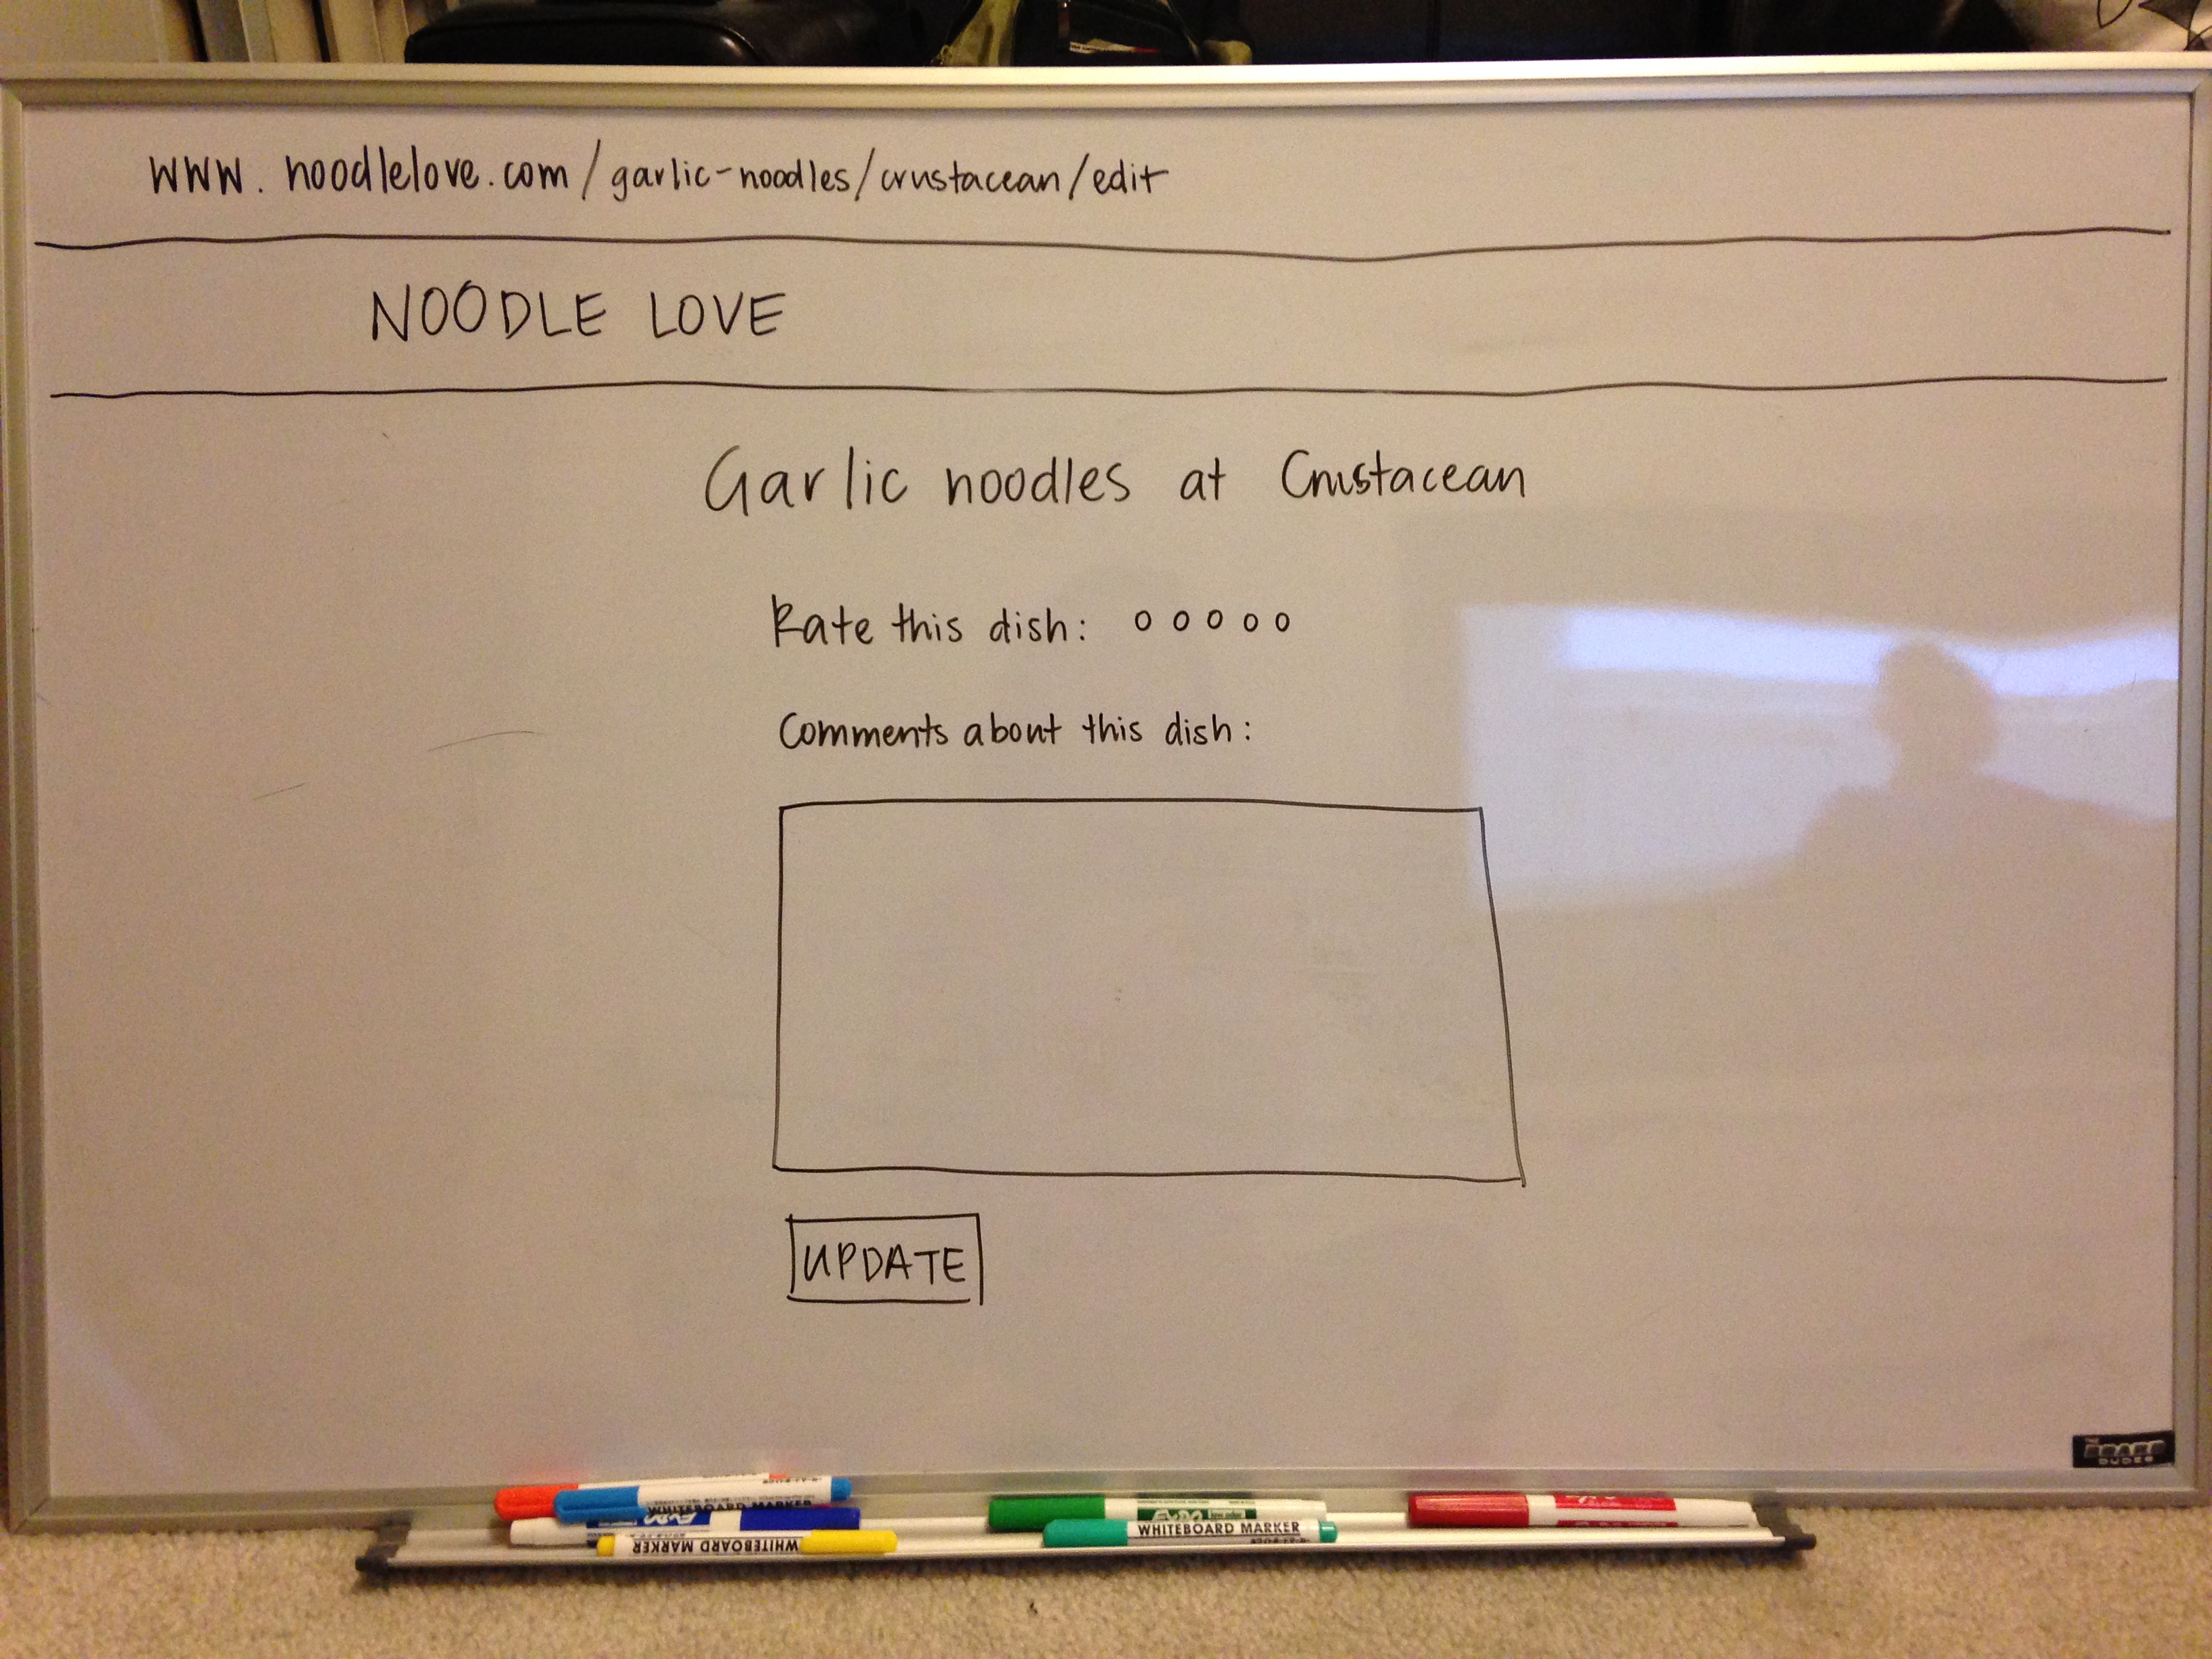 www.noodlelove.com/garlic-noodles/crustacean/edit
NOODLE LOVE
Garlic noodles at Crustacean
Rate this dish: o o o o o
Comments about this dish:
UPDATE
THE BOARD DUDES
WHITEBOARD MARKER
EXPO
EXPO
WHITEBOARD MARKER
WHITEBOARD MARKER